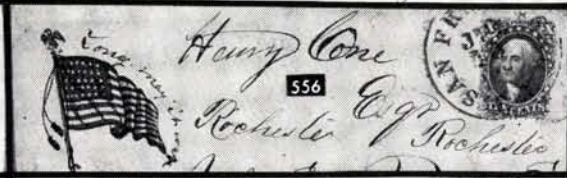 Long may it wave
Henry Cone
556
Esqr
Rochester
Rochester
SAN FR
JAN